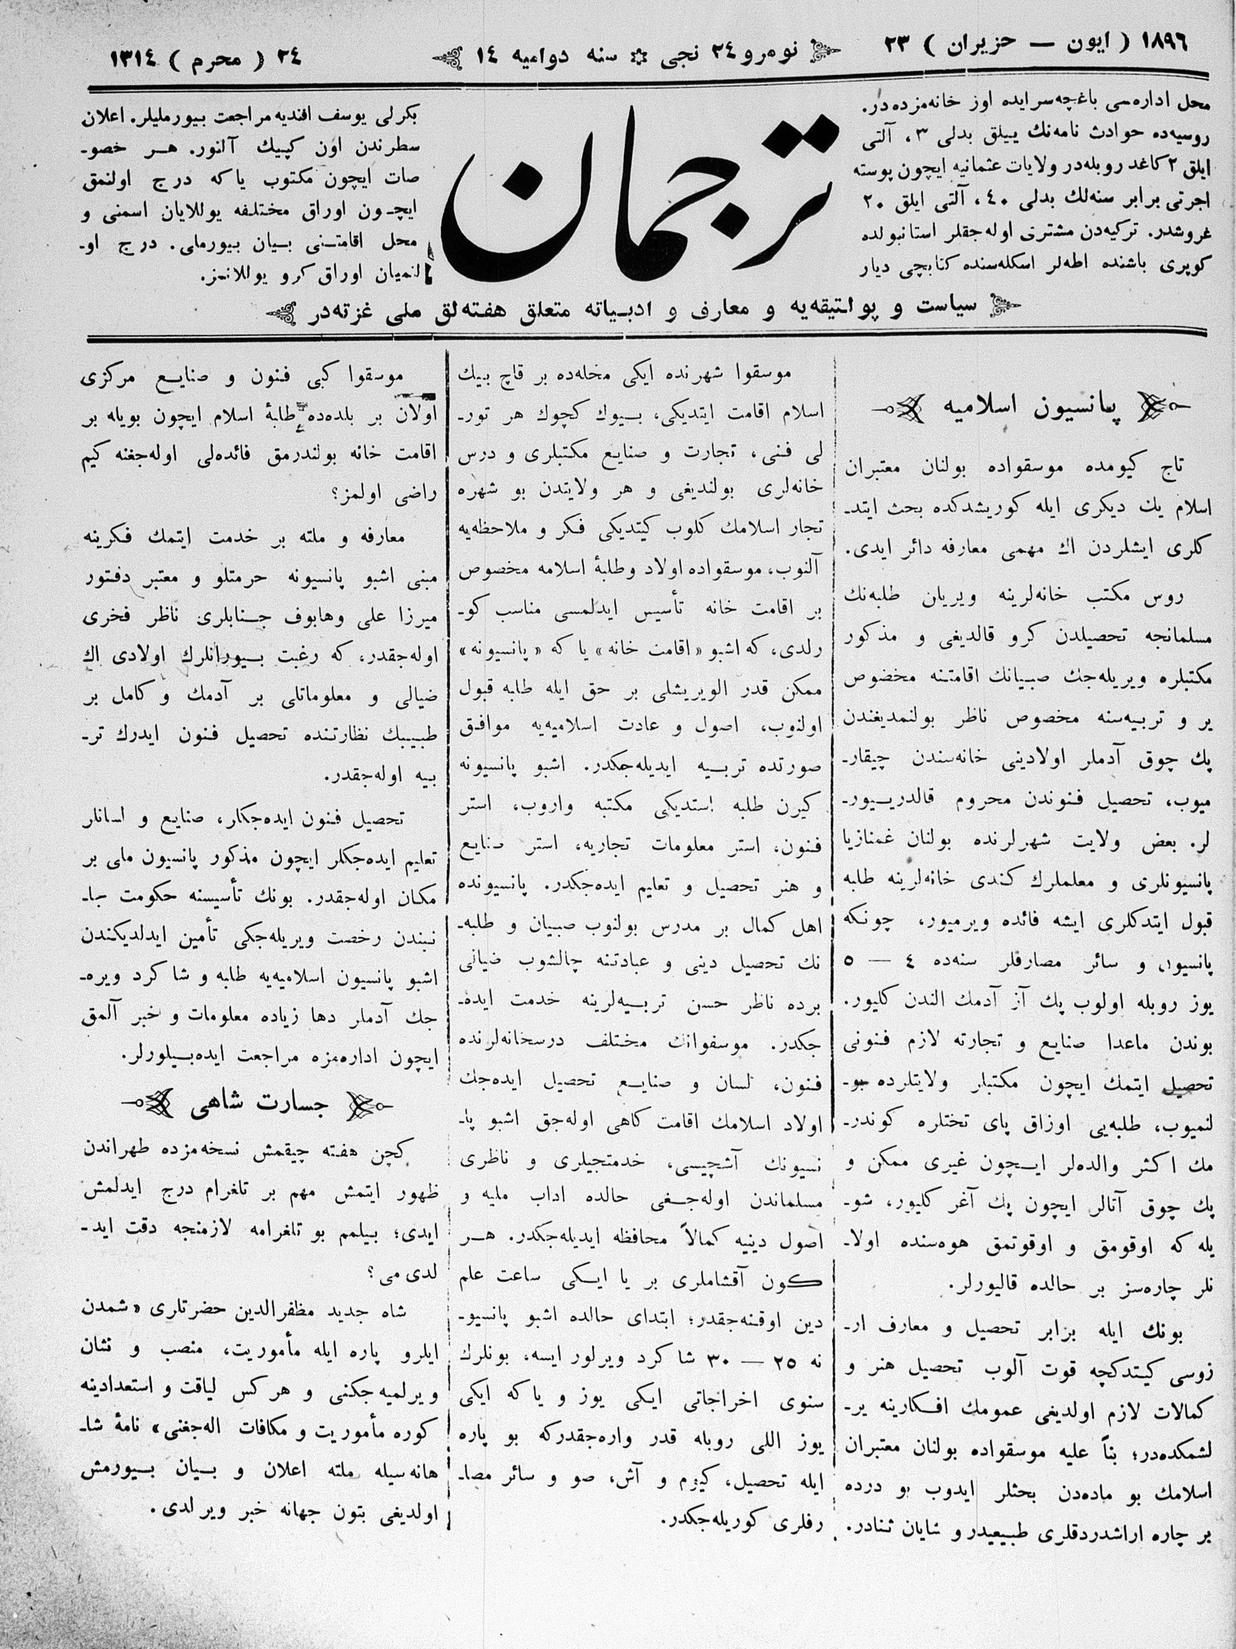 ١٨٩٦ ( ايون — حزيران ) ٢٣
نومرو ٢٤ نجى ✲ سنه دواميه ١٤
٢٤ ( محرم ) ١٣١٤
محل اداره‌سى باغچه‌سرايده اوز خانه‌مزده‌در.
روسيه‌ده حوادث نامه‌نك ييللق بدلى ٣، آلتى
ايلق ٢ كاغد روبله‌در ولايات عثمانيه ايچون پوسته
اجرتى برابر سنه‌لك بدلى ٤٠، آلتى ايلق ٢٠
غروشدر. تركيه‌دن مشترى اوله‌جقلر استانبولده
كوپرى باشنده اطه‌لر اسكله‌سنده كتابچى ديار
ترجمان
بكرلى يوسف افنديه مراجعت بيورمليلر. اعلان
سطرندن اون كپيك آلنور. هر خصو-
صات ايچون مكتوب ياكه درج اولنمق
ايچون اوراق مختلفه يوللايان اسمنى و
محل اقامتنى بيان بيورملى. درج او-
لنميان اوراق كرو يوللانمز.
سياست و پولتيقه‌يه و معارف و ادبياته متعلق هفته‌لق ملى غزته‌در
پانسيون اسلاميه
تاج كيومده موسقواده بولنان معتبران
اسلام يك ديكرى ايله كوريشدكده بحث ايتد-
كلرى ايشلردن اك مهمى معارفه دائر ايدى.
روس مكتب خانه‌لرينه ويريان طلبه‌نك
مسلمانجه تحصيلدن كرو قالديغى و مذكور
مكتبلره ويريله‌جك صبيانك اقامتنه مخصوص
ير و تربيه‌سنه مخصوص ناظر بولنمديغندن
پك چوق آدملر اولادينى خانه‌سندن چيقار-
ميوب، تحصيل فنوندن محروم قالدريبور-
لر. بعض ولايت شهرلرنده بولنان غمنازيا
پانسيونلرى و معلملرك كندى خانه‌لرينه طلبه
قبول ايتدكلرى ايشه فائده ويرميور، چونكه
پانسيون و سائر مصارفلر سنه‌ده ٤ — ٥
يوز روبله اولوب پك آز آدمك الندن كليور.
بوندن ماعدا صنايع و تجارته لازم فنونى
تحصيل ايتمك ايچون مكتبلر ولايتلرده بو-
لنميوب، طلبه‌يى اوزاق پاى تختلره كوندر-
مك اكثر والده‌لر ايچون غيرى ممكن و
پك چوق آتالر ايچون پك آغر كليور، شو-
يله كه اوقومق و اوقوتمق هوه‌سنده اولا-
نلر چاره‌سز بر حالده قاليورلر.
بونك ايله برابر تحصيل و معارف ار-
زوسى كيتدكچه قوت آلوب تحصيل هنر و
كمالات لازم اولديغى عمومك افكارينه ير-
لشمكده‌در؛ بناً عليه موسقواده بولنان معتبران
اسلامك بو ماده‌دن بحثلر ايدوب بو درده
بر چاره اراشدردقلرى طبيعيدر و شايان ثنادر.
موسقوا شهرنده ايكى محله‌ده بر قاچ بيك
اسلام اقامت ايتديكى، بيوك كچوك هر تور-
لى فنى، تجارت و صنايع مكتبلرى و درس
خانه‌لرى بولنديغى و هر ولايتدن بو شهره
تجار اسلامك كلوب كيتديكى فكر و ملاحظه‌يه
آلنوب، موسقواده اولاد وطلبهٔ اسلامه مخصوص
بر اقامت خانه تأسيس ايدلمسى مناسب كو-
رلدى، كه اشبو «اقامت خانه» يا كه «پانسيونه»
ممكن قدر الويريشلى بر حق ايله طلبه قبول
اولنوب، اصول و عادت اسلاميه‌يه موافق
صورتده تربيه ايديله‌جكدر. اشبو پانسيونه
كيرن طلبه استديكى مكتبه واروب، استر
فنون، استر معلومات تجاريه، استر صنايع
و هنر تحصيل و تعليم ايده‌جكدر. پانسيونده
اهل كمال بر مدرس بولنوب صبيان و طلبه-
نك تحصيل دينى و عبادتنه چالشوب ضيالى
برده ناظر حسن تربيه‌لرينه خدمت ايده-
جكدر. موسقوانك مختلف درسخانه‌لرنده
فنون، لسان و صنايع تحصيل ايده‌جك
اولاد اسلامك اقامت كاهى اوله‌جق اشبو پا-
نسيونك آشچيسى، خدمتجيلرى و ناظرى
مسلماندن اوله‌جغى حالده اداب مليه و
اصول دينيه كمالاً محافظه ايديله‌جكدر. هر
كون آقشاملرى بر يا ايكى ساعت علم
دين اوقنه‌جقدر؛ ابتداى حالده اشبو پانسيو-
نه ٢٥ — ٣٠ شاكرد ويرلور ايسه، بونلرك
سنوى اخراجاتى ايكى يوز و ياكه ايكى
يوز اللى روبله قدر واره‌جقدركه بو پاره
ايله تحصيل، كيوم و آش، صو و سائر مصا-
رفلرى كوريله‌جكدر.
موسقوا كبى فنون و صنايع مركزى
اولان بر بلده‌ده طلبهٔ اسلام ايچون بويله بر
اقامت خانه بولندرمق فائده‌لى اوله‌جغنه كيم
راضى اولمز؟
معارفه و ملته بر خدمت ايتمك فكرينه
مبنى اشبو پانسيونه حرمتلو و معتبر دفتور
ميرزا على وهابوف جنابلرى ناظر فخرى
اوله‌جقدر، كه رغبت بيورانلرك اولادى اك
ضيالى و معلوماتلى بر آدمك و كامل بر
طبيبك نظارتنده تحصيل فنون ايدرك تر-
بيه اوله‌جقدر.
تحصيل فنون ايده‌جكلر، صنايع و لسانلر
تعليم ايده‌جكلر ايچون مذكور پانسيون ملى بر
مكان اوله‌جقدر. بونك تأسيسنه حكومت جا-
نبندن رخصت ويريله‌جكى تأمين ايدلديكندن
اشبو پانسيون اسلاميه‌يه طلبه و شاكرد ويره-
جك آدملر دها زياده معلومات و خبر آلمق
ايچون اداره‌مزه مراجعت ايده‌بيلورلر.
جسارت شاهى
كچن هفته چيقمش نسخه‌مزده طهراندن
ظهور ايتمش مهم بر تلغرام درج ايدلمش
ايدى؛ بيلمم بو تلغرامه لازمنجه دقت ايد-
لدى مى؟
شاه جديد مظفرالدين حضرتلرى «شمدن
ايلرو پاره ايله مأموريت، منصب و نشان
ويرلميه‌جكنى و هركس لياقت و استعدادينه
كوره مأموريت و مكافات اله‌جغنى» نامهٔ شا-
هانه‌سيله ملته اعلان و بيان بيورمش
اولديغى بتون جهانه خبر ويرلدى.